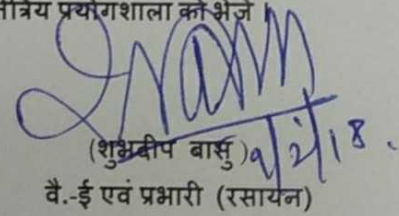 त्रिय प्रयोगशाला को भेजें।
(शुभदीप बासु) 9/2/18.
वै.-ई एवं प्रभारी (रसायन)